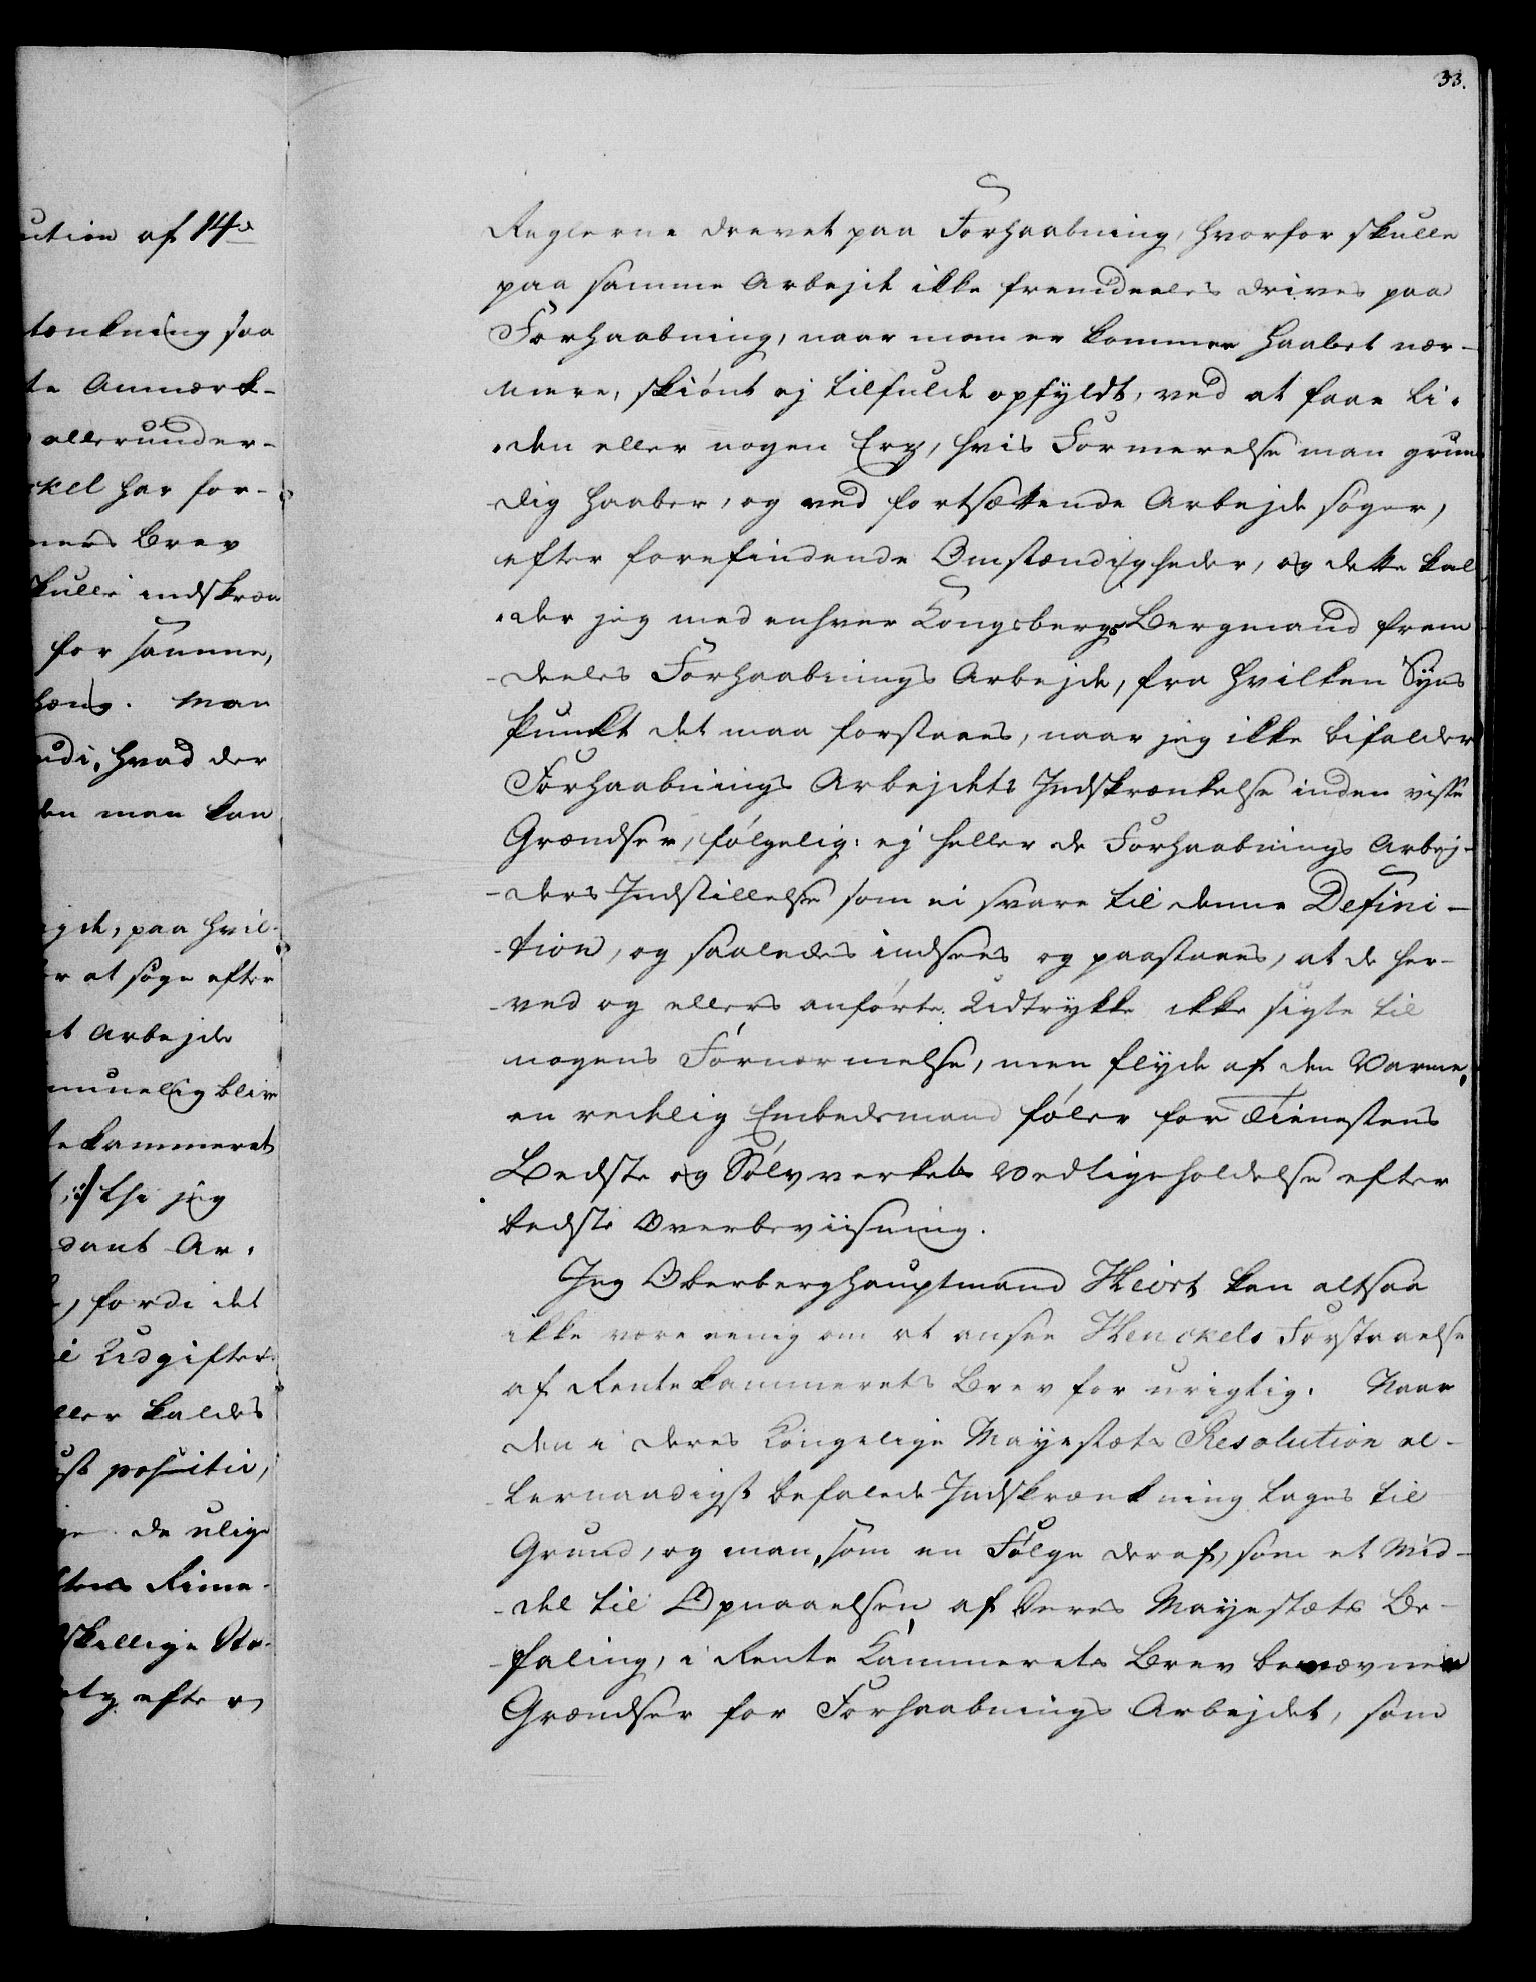 33.
ution af 14de
tænkning saa
te Anmærk-
allerunder-
ckel har for-
mers Brev
skulle indskræn
for samme,
hæng. Man
udi, hvad der
den man kan
ejde, paa hvil-
er at søge efter
at Arbejde
muuelig blive
tekammeret
thi jeg
dant Ar-
fordi det
Udgifter
eller kaldes
positiv,
de ulige
skellige
efter
Reglerne drevet paa Forhaabning, hvorfor skulle
paa samme Arbejde ikke fremdeeles drives paa
Forhaabning, naar man er kommen Haabet nær-
mere, skiønt ej tilfulde opfyldt, ved at faae li-
den eller nogen Erz, hvis Formerelse man grun
dig haaber, og ved fortsættende Arbejde søger,
efter forefindende Omstændigheder, og dette kal
der jeg med enhver Kongsbergs Bergmand frem
deeles Forhaabnings Arbejde, fra hvilken Syns
Punkt det maa forstaaes, naar jeg ikke bifalder
Forhaabnings Arbejdets Indskrænkelse inden visse
Grændser, følgelig ej heller de Forhaabnings Arbej-
ders Indstillelse som ei svare til denne Defini-
tion, og saaledes indsees og paastaaes, at de her-
ved og ellers anførte Udtrykke ikke sigte til
nogens Fornærmelse, men flyde af den Varme,
en redelig Embedsmand føler for Tienestens
Bedste og Sølvverkets Vedligeholdelse efter
bedste Overbeviisning.
Jeg Oberberghauptmand Hiort kan altsaa
ikke være eenig om at ansee Henckels Forstaaelse
af Rentekammerets Brev for urigtig. Naar
den i Deres Kongelige Mayestæts Resolution al-
lernaadigst befalede Indskrænkning tages til
Grund, og man, som en Følge deraf, som et Mid-
del til Opnaaelsen af Deres Mayestæts Be-
faling, i Rente Kammerets Brev benævner
Grændser for Forhaabnings Arbejdet, som